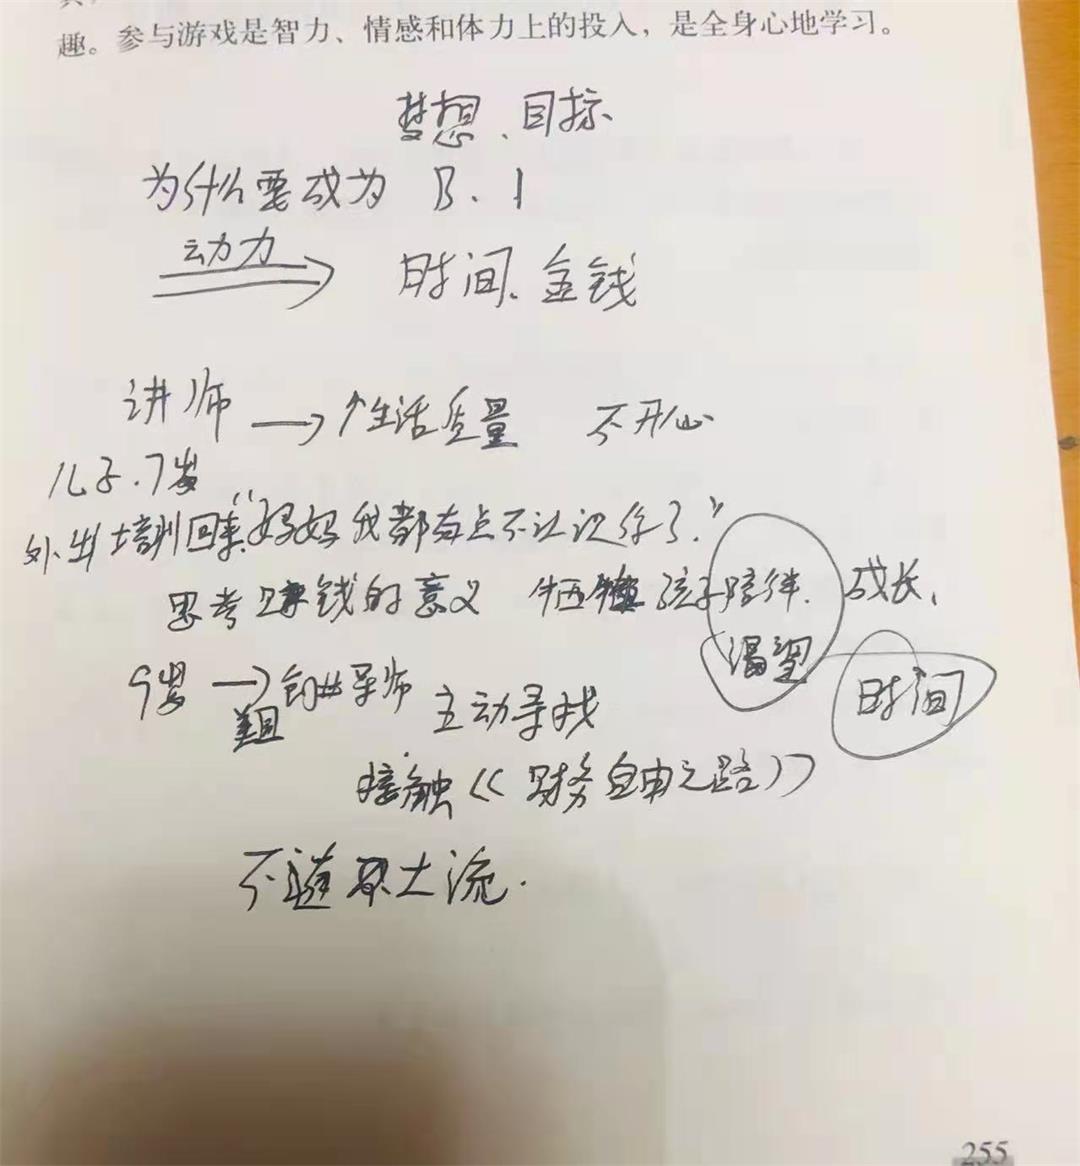 趣。参与游戏是智力、情感和体力上的投入，是全身心地学习。
梦想、目标
为什么要成为 B.1
动力
时间、金钱
讲师 → ↑生活质量 不开心
儿子.7岁
外出培训回来“妈妈我都有点不认识你了.”
思考赚钱的意义 牺牲孩子陪伴. 成长、
渴望 时间
9岁 → 创业导师 主动寻找
美国
接触《财务自由之路》
不随 大流.
255